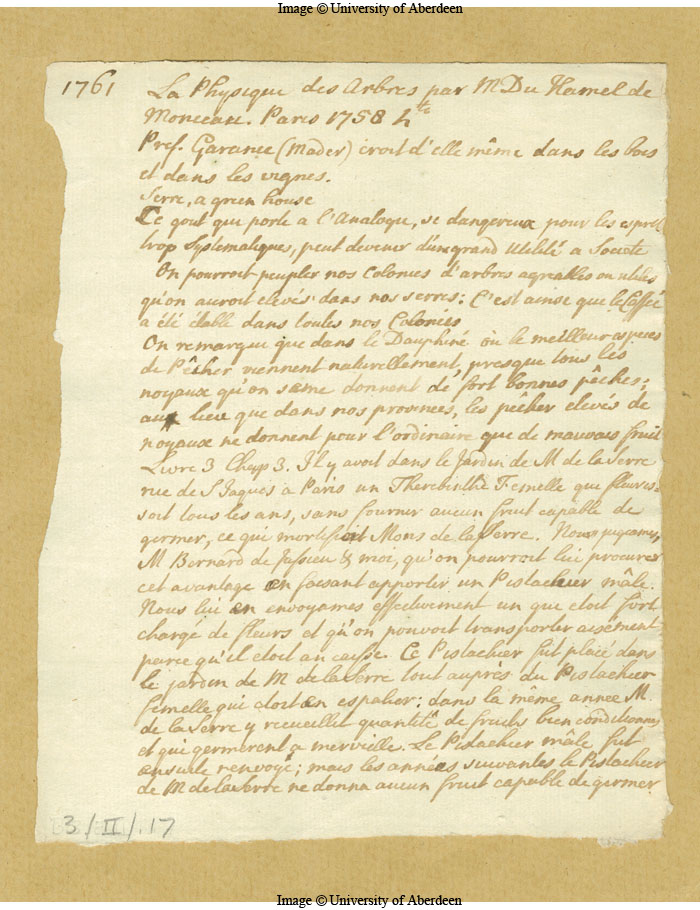 Image © University of Aberdeen
1761 La Physique des Arbres par M Du Hamel de
Monceau. Paris 1758 4to
Pref. Garance (Mader) croit d'elle même dans les bois
et dans les vignes.
Serre, a green house
Ce gout qui porte a l'Analogue, se dangereux pour les esprits
trop Systematiques, peut devenir d'une grand utilité a Societé
On pourroit peupler nos Colonies d'arbres agreables ou utiles
qu'on auroit elevés dans nos serres: C'est ainsi que le Caffé
a été établé dans toutes nos Colonies
On remarque que dans le Dauphiné où le meilleur especes
de Pêcher viennent naturellement, presque tous les
noyaux qu'on seme donnent de fort bonnes pêches;
au lieu que dans nos provinces, les pêcher elevés de
noyaux ne donnent pour l'ordinaire que de mauvais fruit
Livre 3 Chap 3. Il y avoit dans le Jardin de M de la Serre
rue de S Jaques a Paris un Therebinthe Femelle que fleures-
soit tous les ans, sans fourner aucun fruit capable de
germer, ce qui mortifioit Mons de la Serre. Nous jugeames,
M Bernard de Jussieu & moi, qu'on pourroit lui procurer
cet avantage en faesant apporter un Pistachier mâle.
Nous lui en envoyames effectivement un que etoit fort
chargé de fleurs et qu'on pouvoit transporter aisément
parce qu'il etoit an caisse. Ce Pistachier fut placé dans
le jardin de M de la Serre tout auprès du Pistachier
femelle qui etoit en espalier: dans la même année M.
de la Serre y recueillit quantité de fruits bien conditionnes
et qui germerent a merveille. Le Pistachier mâle fut
ensuite renvoyé; mais les années suivantes le Pistachier
de M de la Serre ne donna aucun fruit capable de germer
3/II/.17
Image © University of Aberdeen